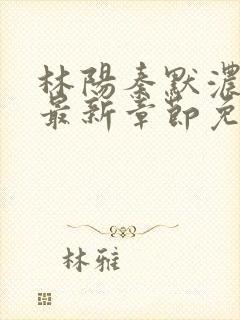 林陽秦默濃
最新章節免
林雅